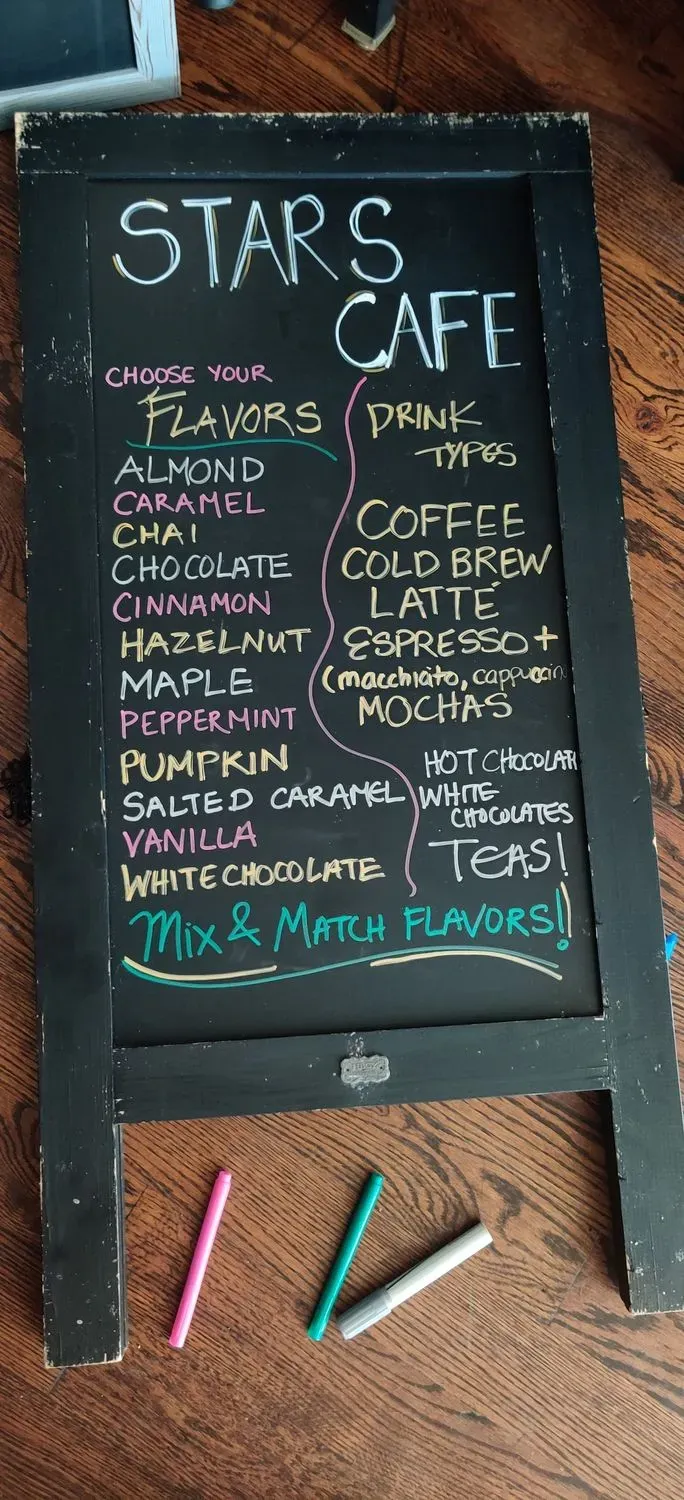 STARS
CAFE
CHOOSE YOUR
FLAVORS
ALMOND
CARAMEL
CHAI
CHOCOLATE
CINNAMON
HAZELNUT
MAPLE
PEPPERMINT
PUMPKIN
SALTED CARAMEL
VANILLA
WHITE CHOCOLATE
DRINK
TYPES
COFFEE
COLD BREW
LATTÉ
ESPRESSO+
(macchiato, cappuccin
MOCHAS
HOT CHOCOLAT
WHITE
CHOCOLATES
TEAS!
Mix & MATCH FLAVORS!